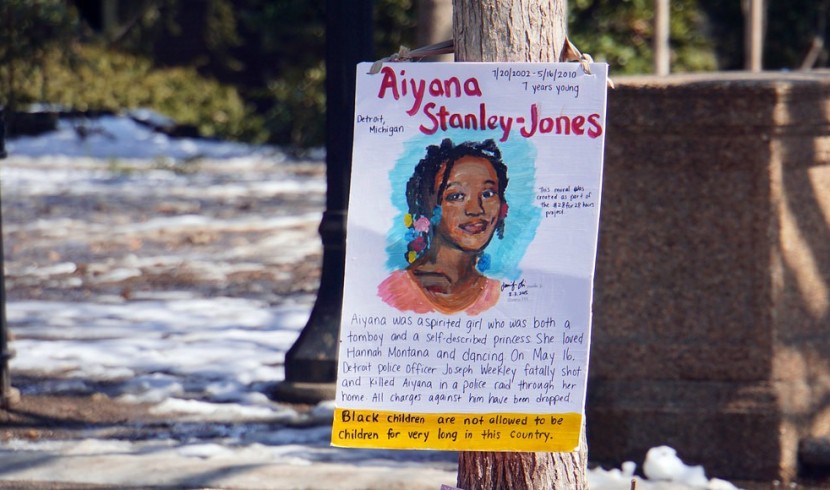 Aiyana
7/20/2002 - 5/16/2010
7 years young
Stanley-Jones
Detroit,
Michigan
This mural was
created as part of
the #28for28 hairs
project
Aiyana was a spirited girl who was both a
tomboy and a self-described princess. She loved
Hannah Montana and dancing. On May 16,
Detroit police officer Joseph Weekley fatally shot
and killed Aiyana in a police raid through her
home. All charges against him have been dropped.
Black children are not allowed to be
children for very long in this country.